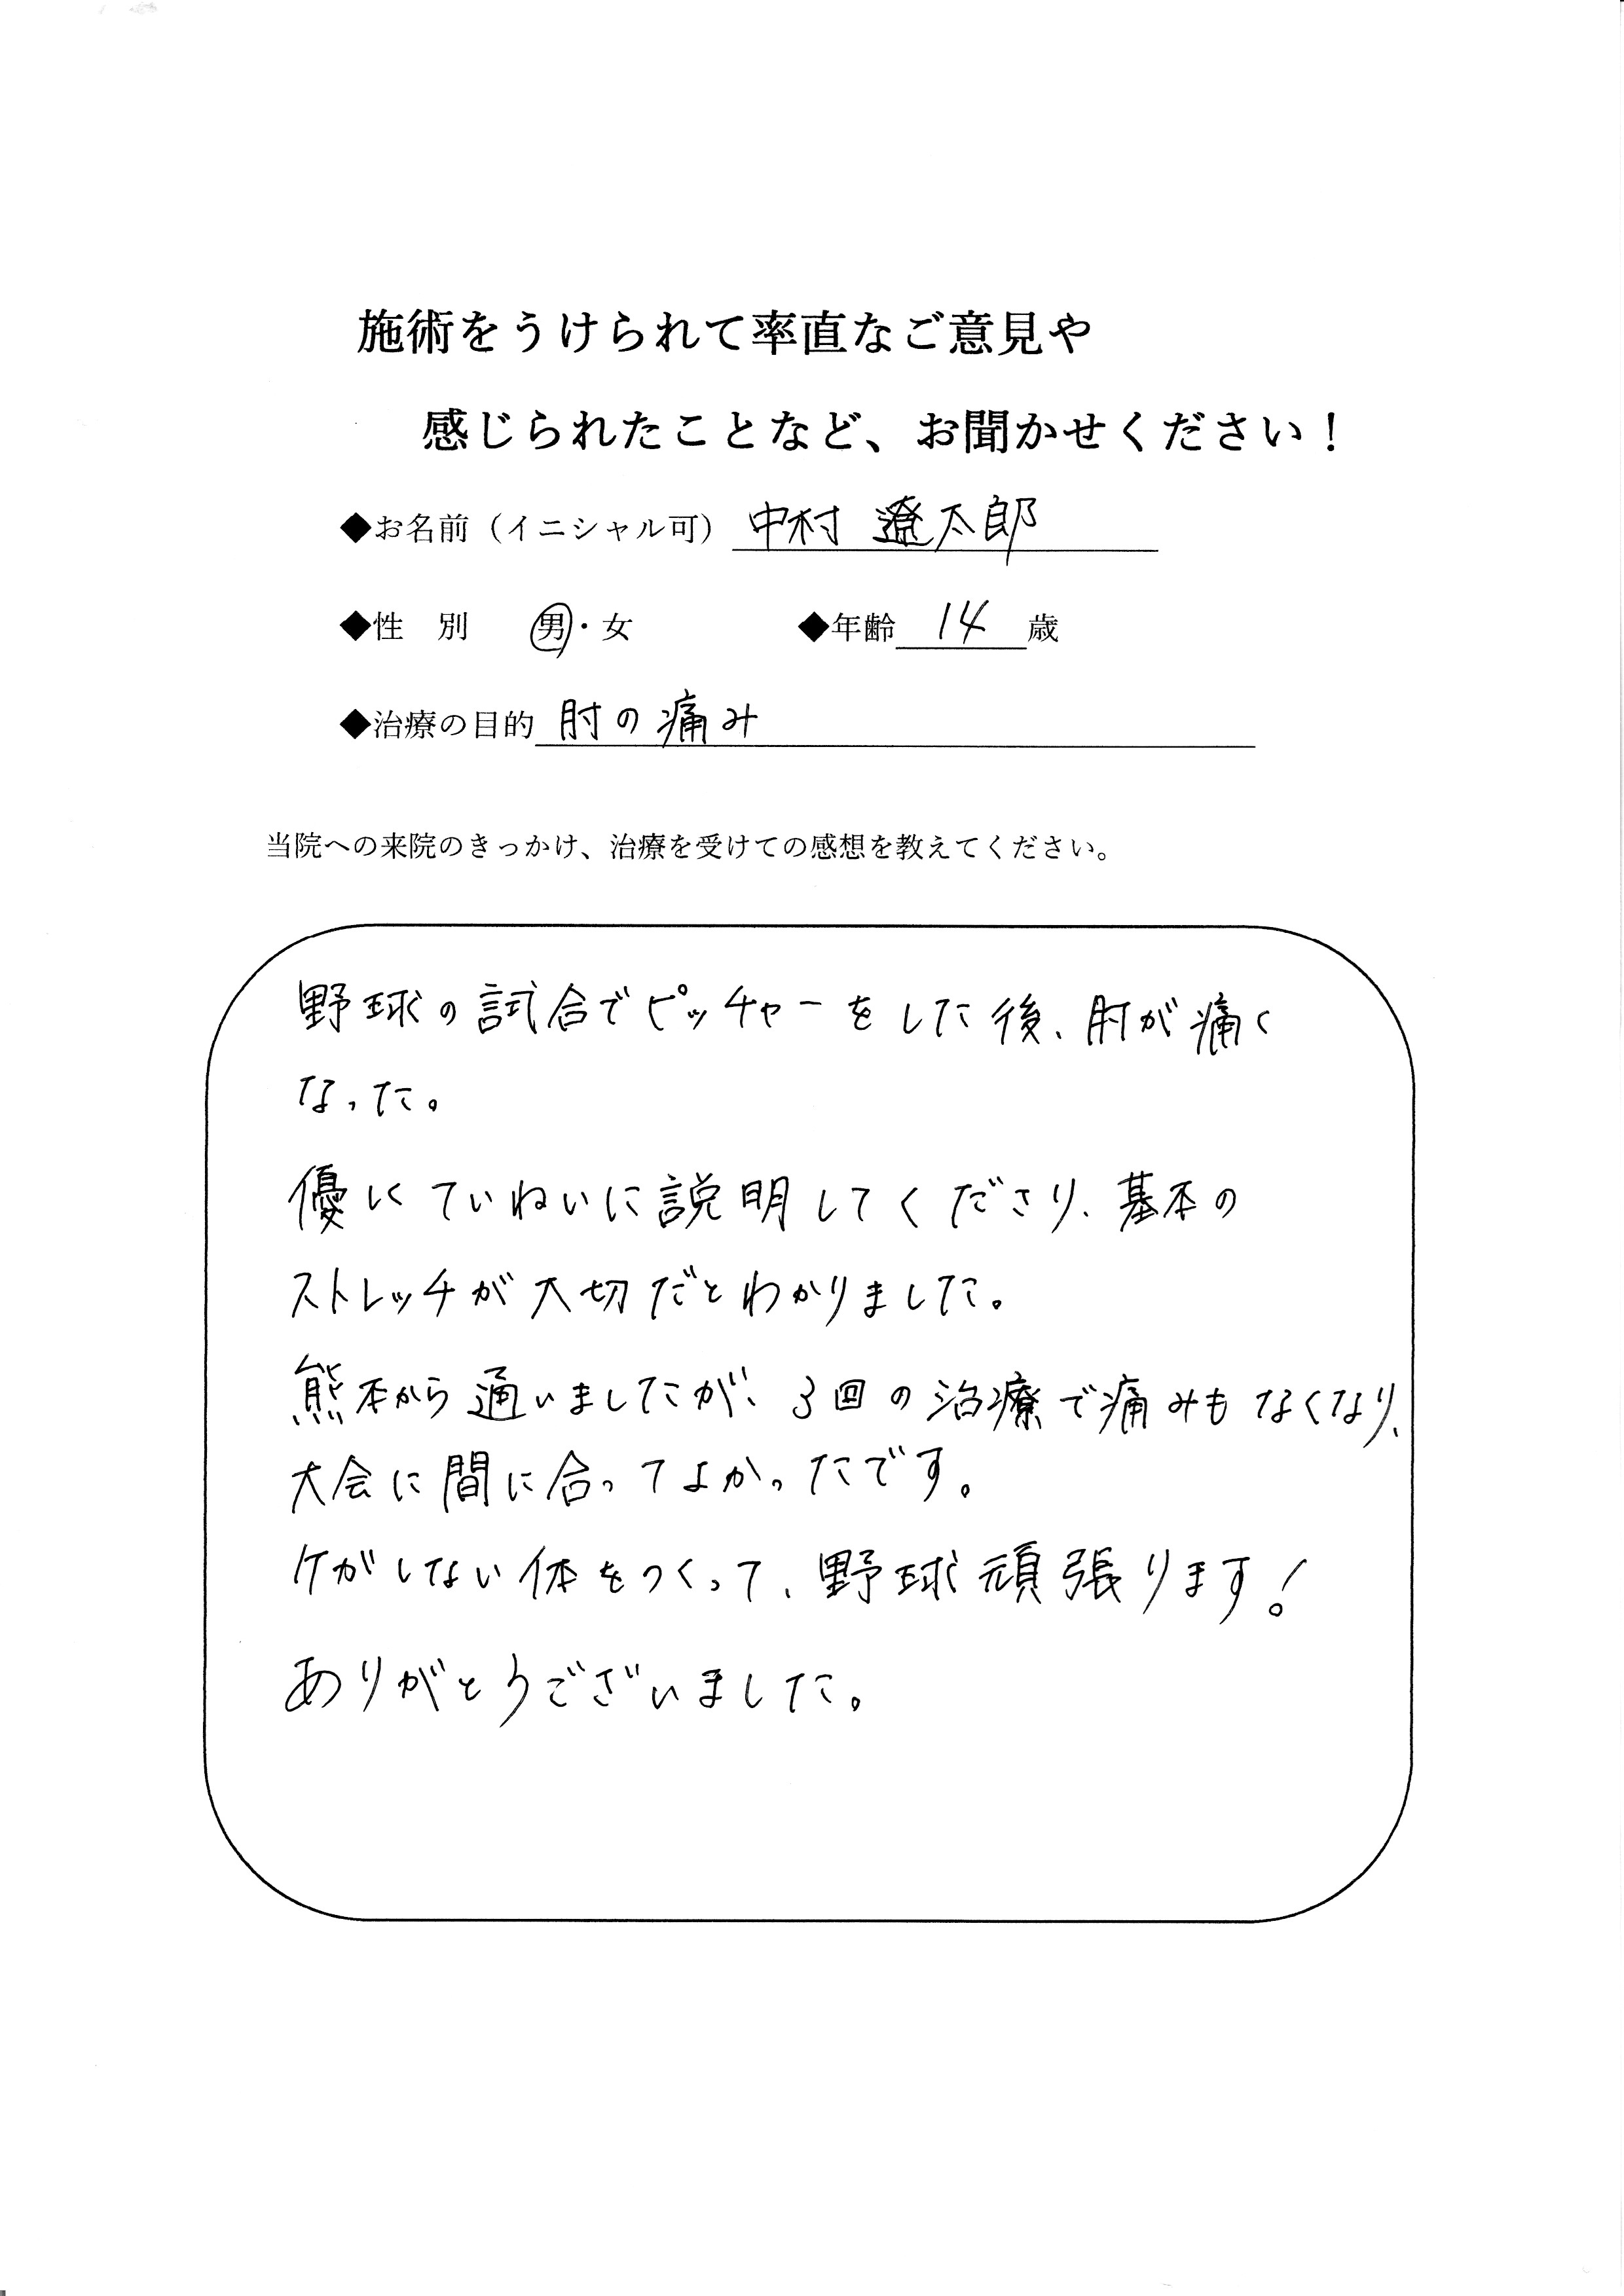 施術をうけられて率直なご意見や
感じられたことなど、お聞かせください！
◆お名前（イニシャル可） 中村 遼太郎
◆性　別　男・女　◆年齢 14 歳
◆治療の目的 肘の痛み
当院への来院のきっかけ、治療を受けての感想を教えてください。
野球の試合でピッチャーをした後、肘が痛く
なった。
優しくていねいに説明してくださり、基本の
ストレッチが大切だとわかりました。
熊本から通いましたが、3回の治療で痛みもなくなり、
大会に間に合ってよかったです。
ケがしない体をつくって、野球頑張ります！
ありがとうございました。